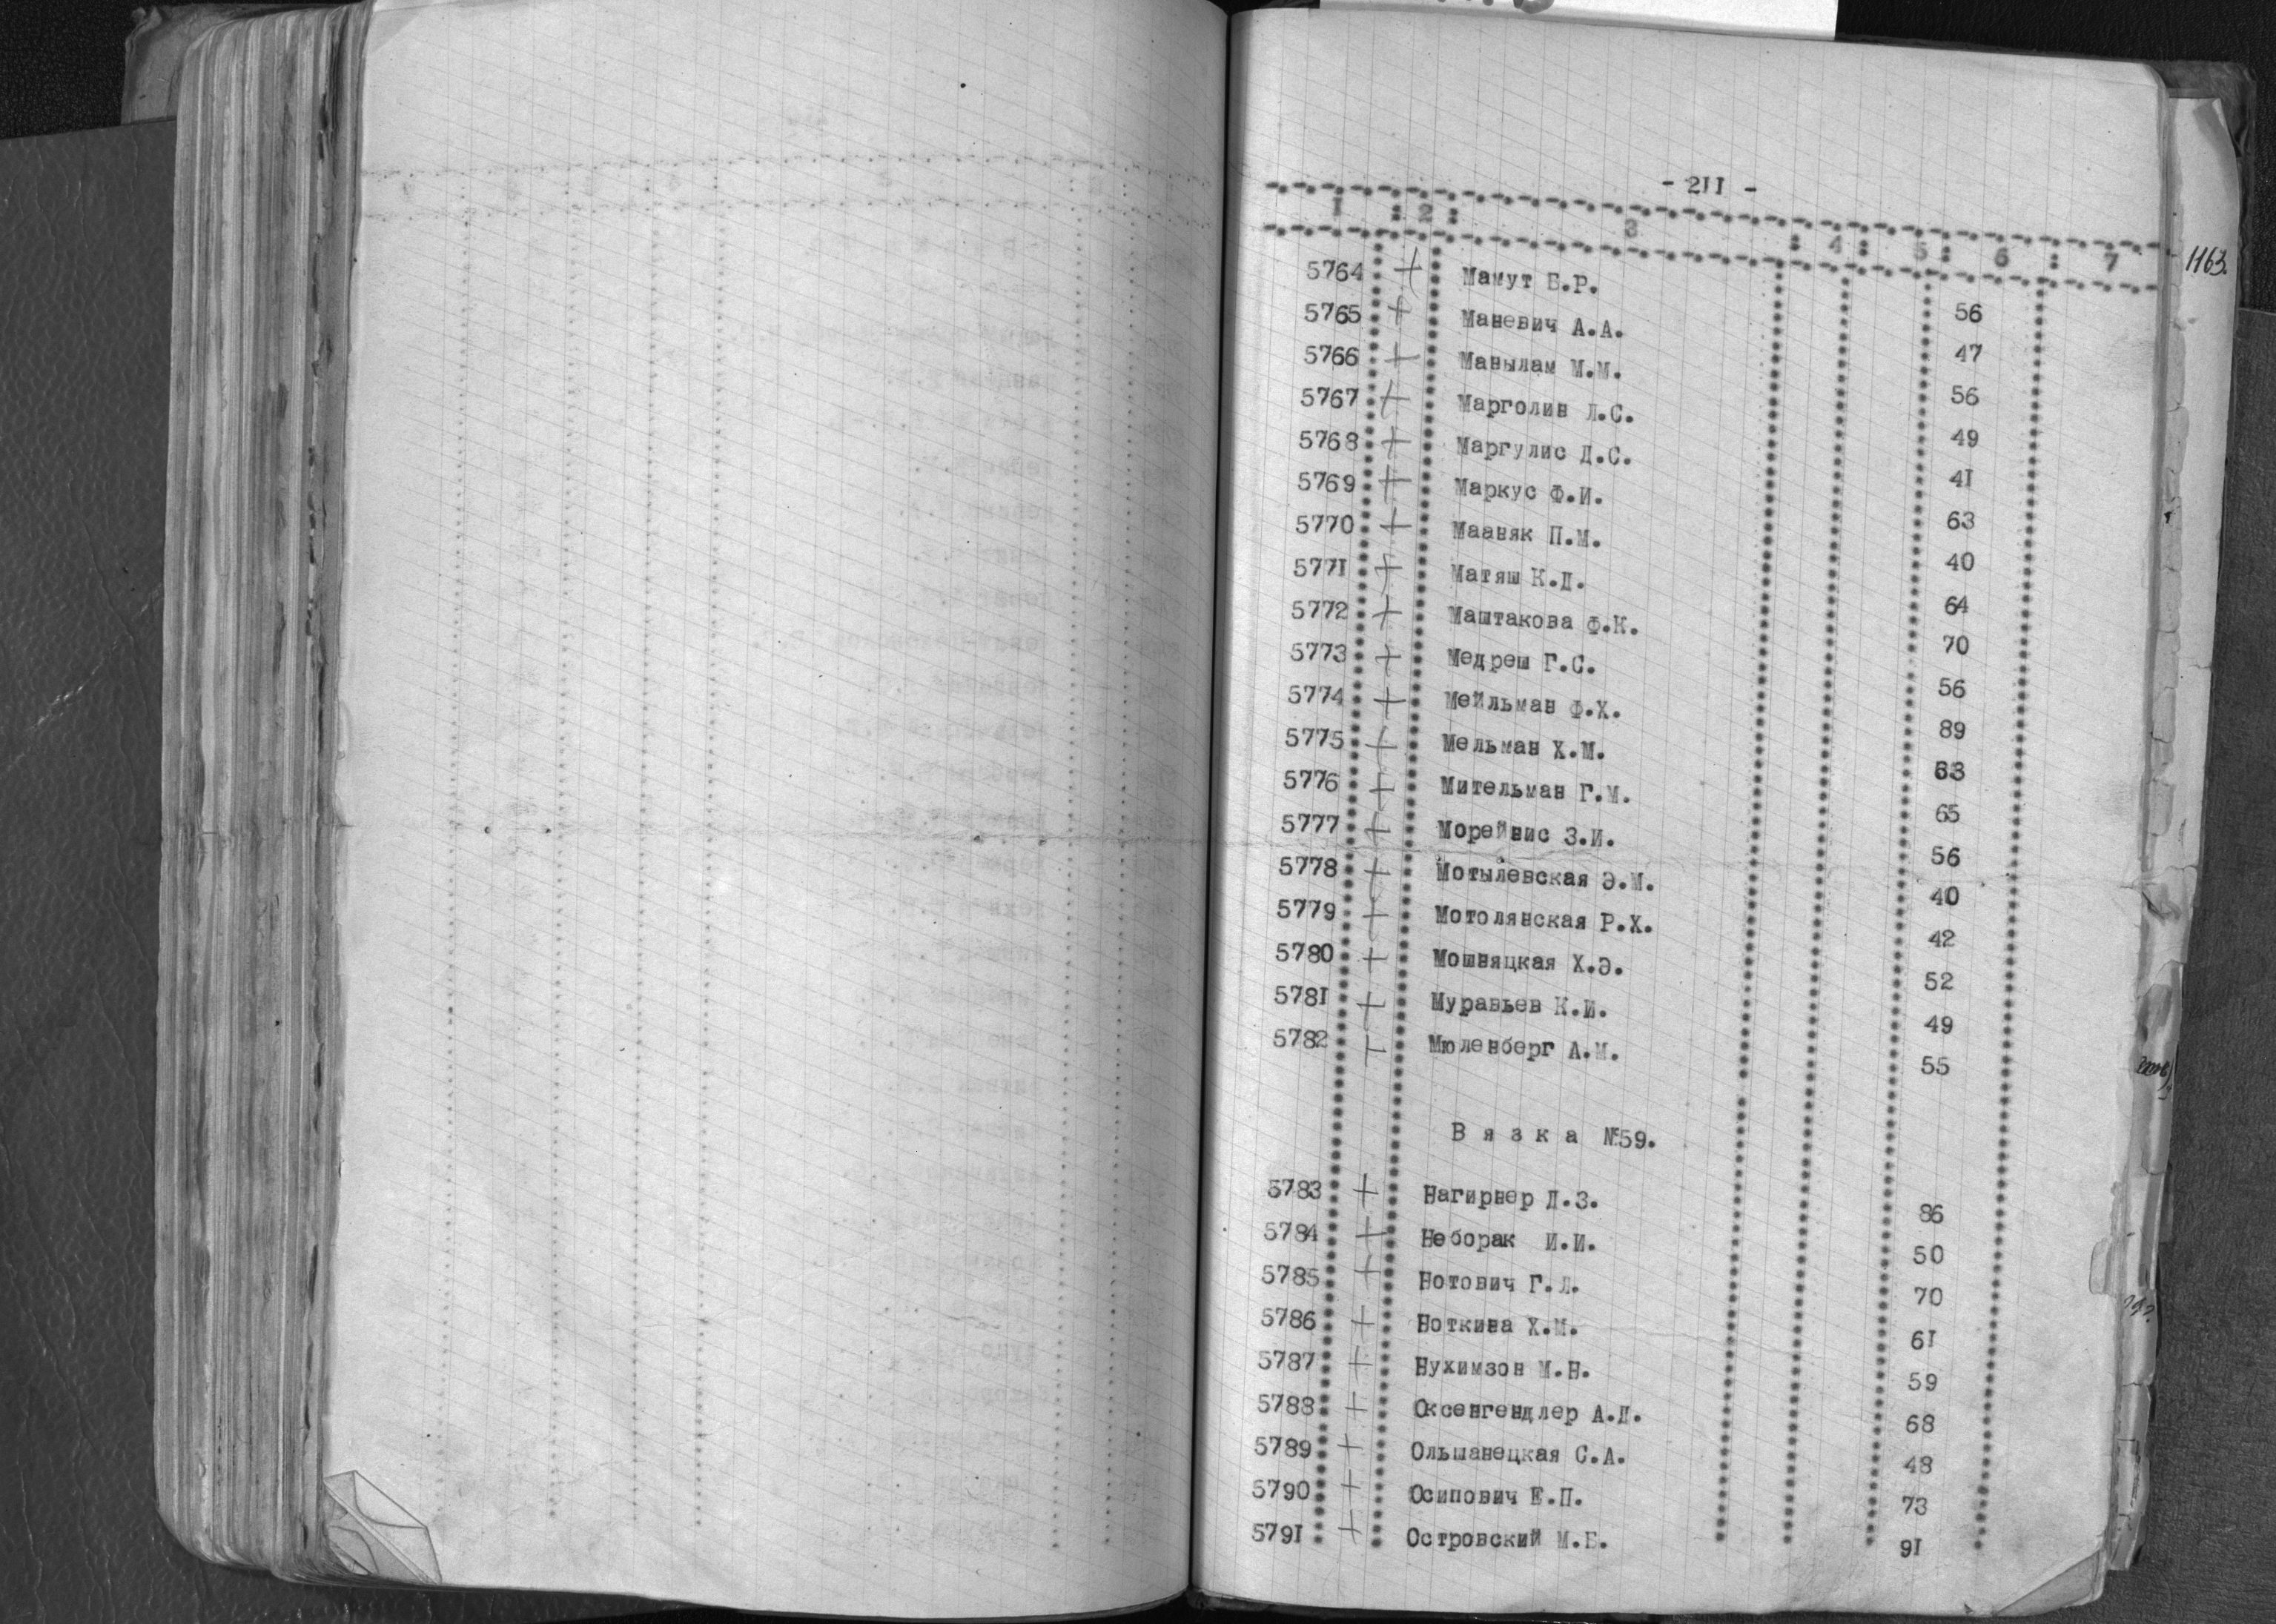 - 211 -
1 : 2 : 3 : 4 : 5 : 6 : 7
1163.
5764 + Мамут Б.Р. 56
5765 + Маневич А.А. 47
5766 + Манылам М.М. 56
5767 + Марголин Л.С. 49
5768 + Маргулис Д.С. 41
5769 + Маркус Ф.И. 63
5770 + Мааняк П.М. 40
5771 + Матяш К.Д. 64
5772 + Маштакова Ф.К. 70
5773 + Медреш Г.С. 56
5774 + Мейльман Ф.Х. 89
5775 + Мельман Х.М. 63
5776 + Мительман Г.М. 65
5777 + Морейнис З.И. 56
5778 + Мотылевская Э.М. 40
5779 + Мотолянская Р.Х. 42
5780 + Мошняцкая Х.Э. 52
5781 + Муравьев К.И. 49
5782 + Мюленберг А.М. 55
Вязка №59.
5783 + Нагирнер Д.З. 86
5784 + Неборак И.И. 50
5785 + Нотович Г.Л. 70
5786 + Ноткина Х.М. 61
5787 + Нухимзон М.Н. 59
5788 + Оксенгендлер А.Д. 68
5789 + Ольшанецкая С.А. 48
5790 + Осипович Е.П. 73
5791 + Островский М.Б. 91